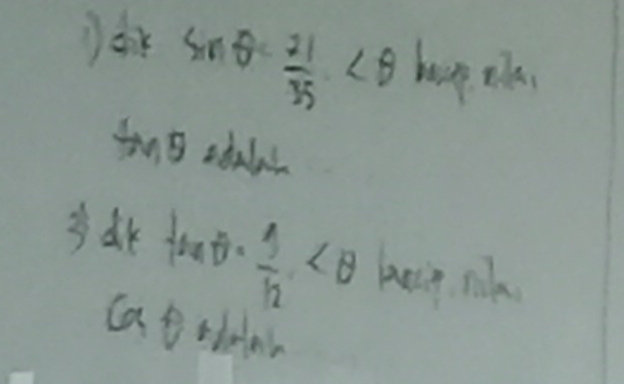 1) dik sin θ = 21/35. < θ lancip. nilai
tan θ adalah ...
2) dik tan θ = 9/12. < θ lancip. nilai
Cos θ adalah ...